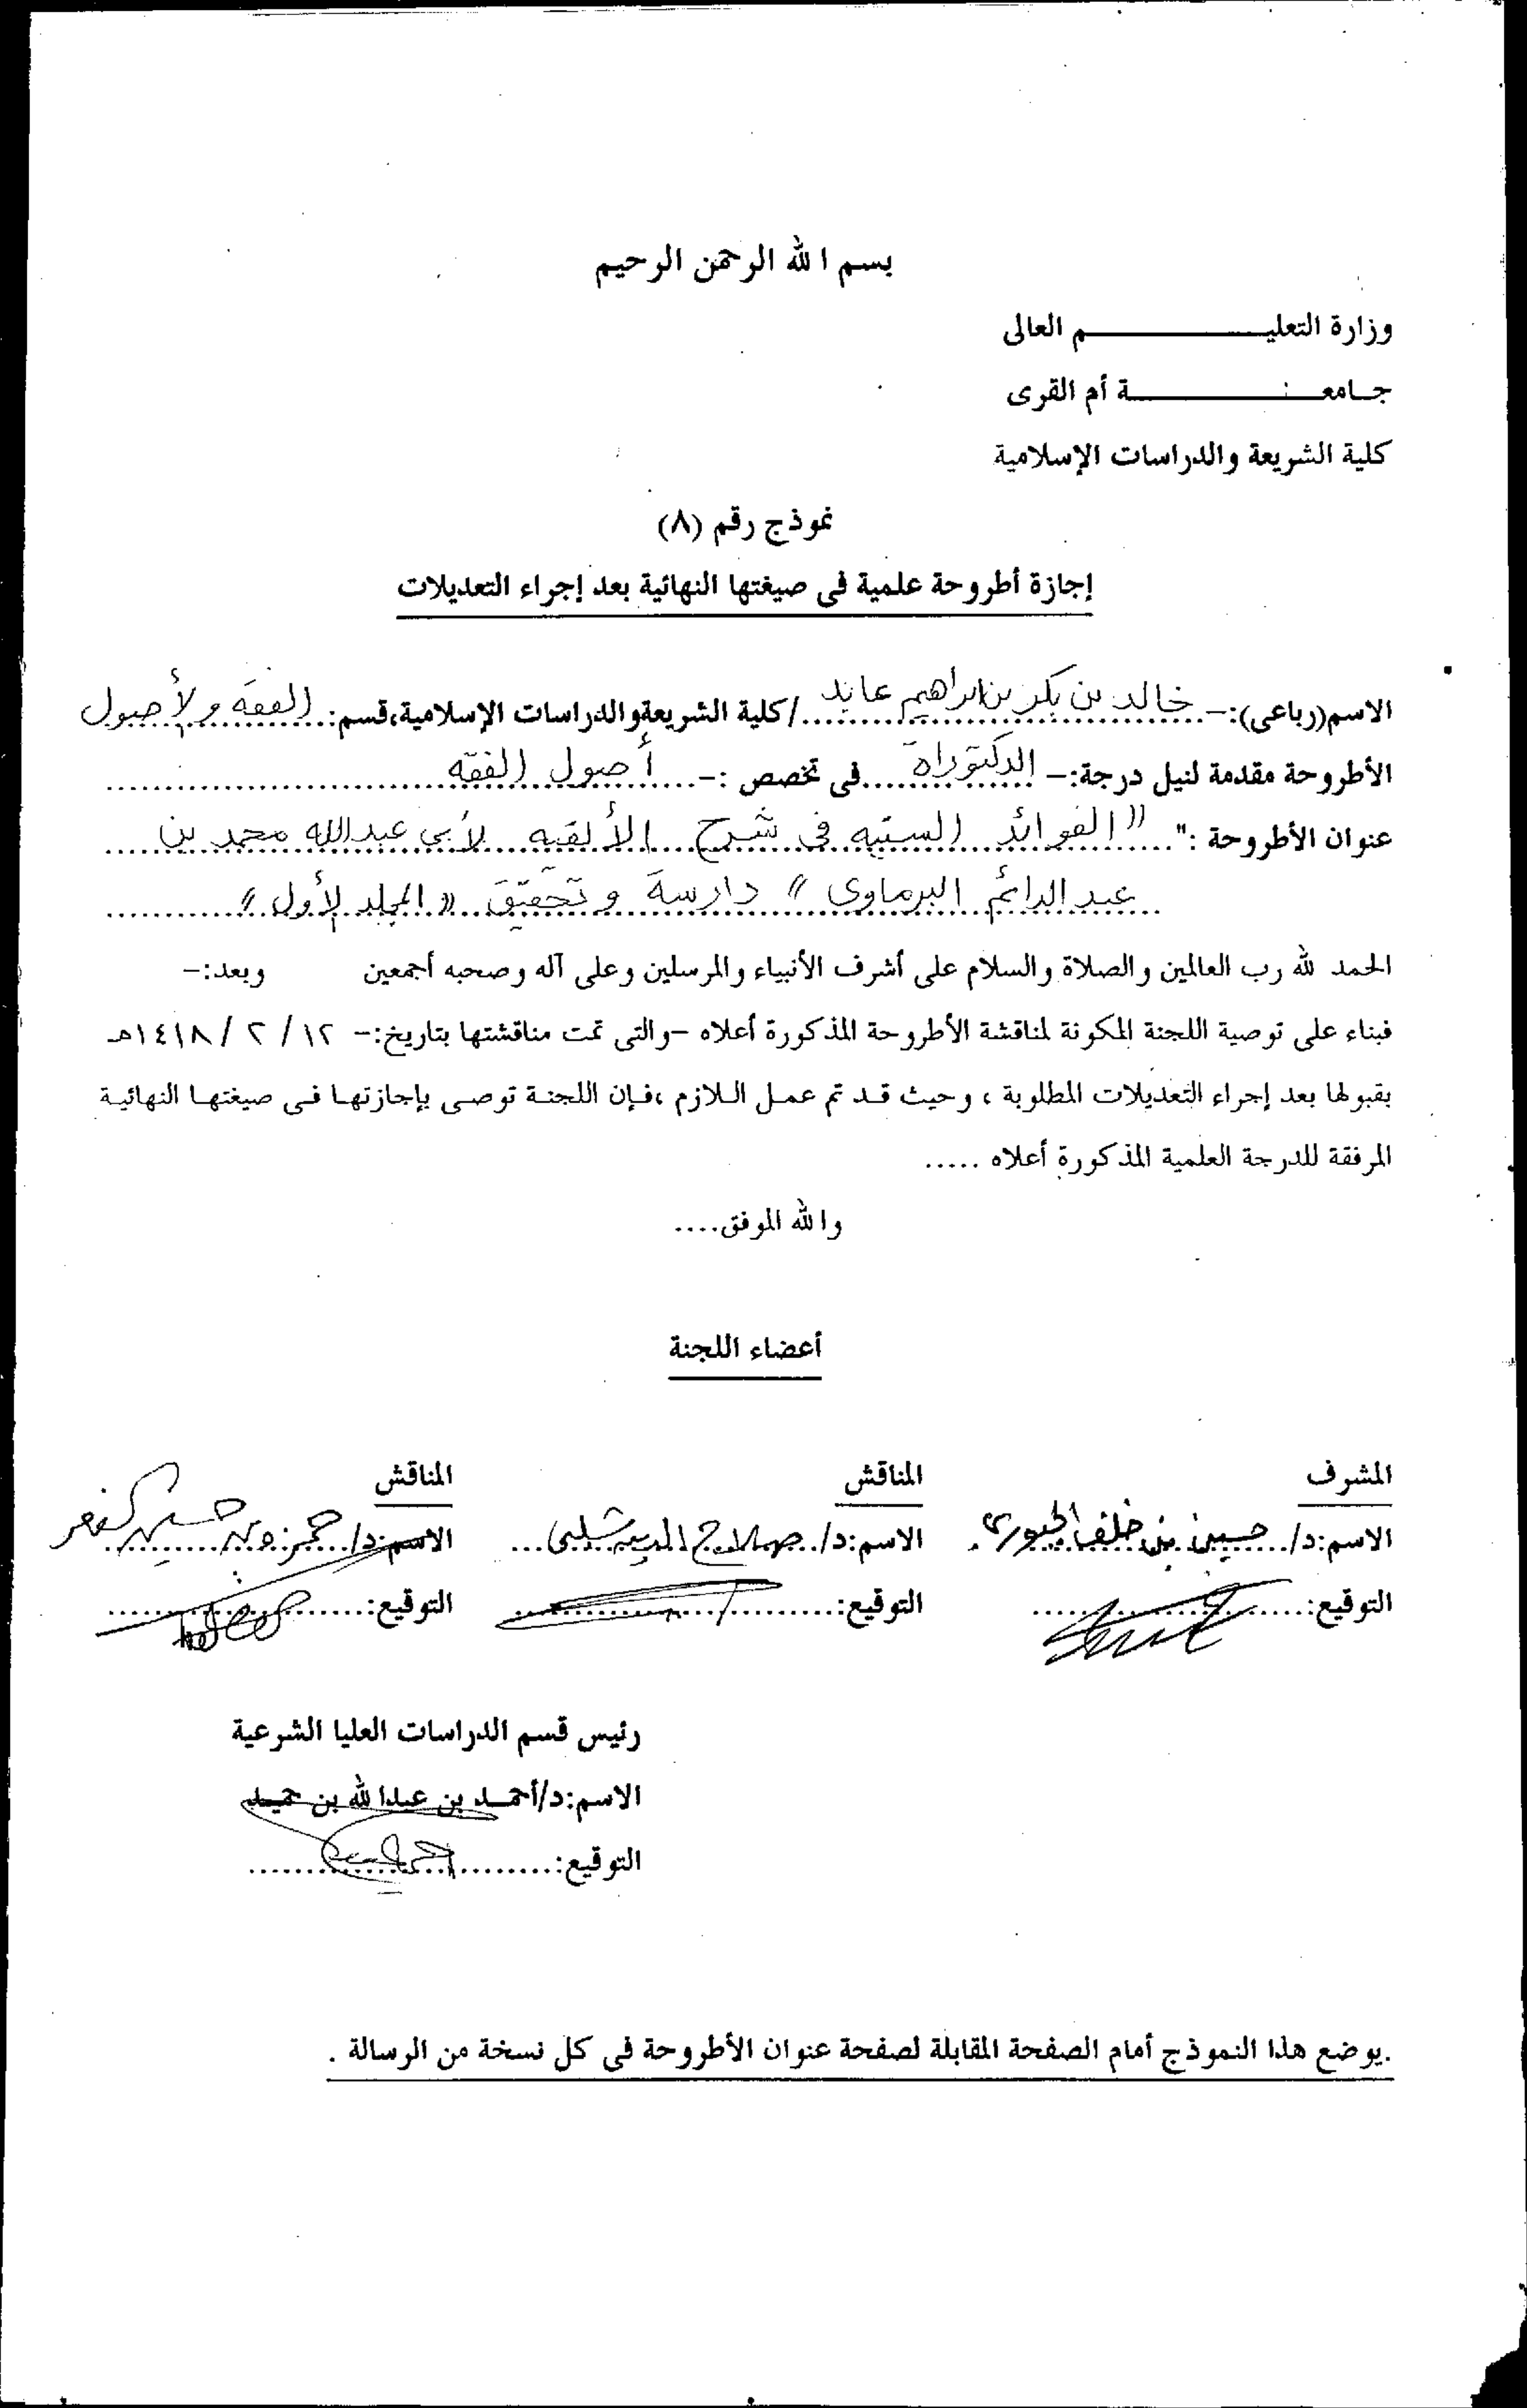 بسم الله الرحمن الرحيم
وزارة التعليم العالى
جامعة أم القرى
كلية الشريعة والدراسات الإسلامية
نموذج رقم (٨)
إجازة أطروحة علمية فى صيغتها النهائية بعد إجراء التعديلات
الاسم(رباعى):- خالد بن بكر بن ابراهيم عابد /كلية الشريعة والدراسات الإسلامية،قسم: الفقه والأصول
الأطروحة مقدمة لنيل درجة:- الدكتوراة فى تخصص :- أصول الفقه
عنوان الأطروحة :" "الفوائد السنيه فى شرح الألفيه لأبي عبدالله محمد بن
عبد الدائم البرماوى" دارسة وتحقيق "المجلد الأول"
الحمد لله رب العالمين والصلاة والسلام على أشرف الأنبياء والمرسلين وعلى آله وصحبه أجمعين وبعد:-
فبناء على توصية اللجنة المكونة لمناقشة الأطروحة المذكورة أعلاه -والتى تمت مناقشتها بتاريخ:- ١٢ / ٢ / ١٤١٨هـ
بقبولها بعد إجراء التعديلات المطلوبة ، وحيث قد تم عمل اللازم ،فإن اللجنة توصى بإجازتها فى صيغتها النهائية
المرفقة للدرجة العلمية المذكورة أعلاه .....
والله الموفق....
أعضاء اللجنة
المشرف المناقش المناقش
الاسم:د/ حسين بن خلف الجبورى الاسم:د/ صلاح الدين شلبى الاسم:د/ حمزه بن حسين الفعر
التوقيع: التوقيع: التوقيع:
رئيس قسم الدراسات العليا الشرعية
الاسم:د/أحمد بن عبدالله بن حميد
التوقيع:
.يوضع هذا النموذج أمام الصفحة المقابلة لصفحة عنوان الأطروحة فى كل نسخة من الرسالة .